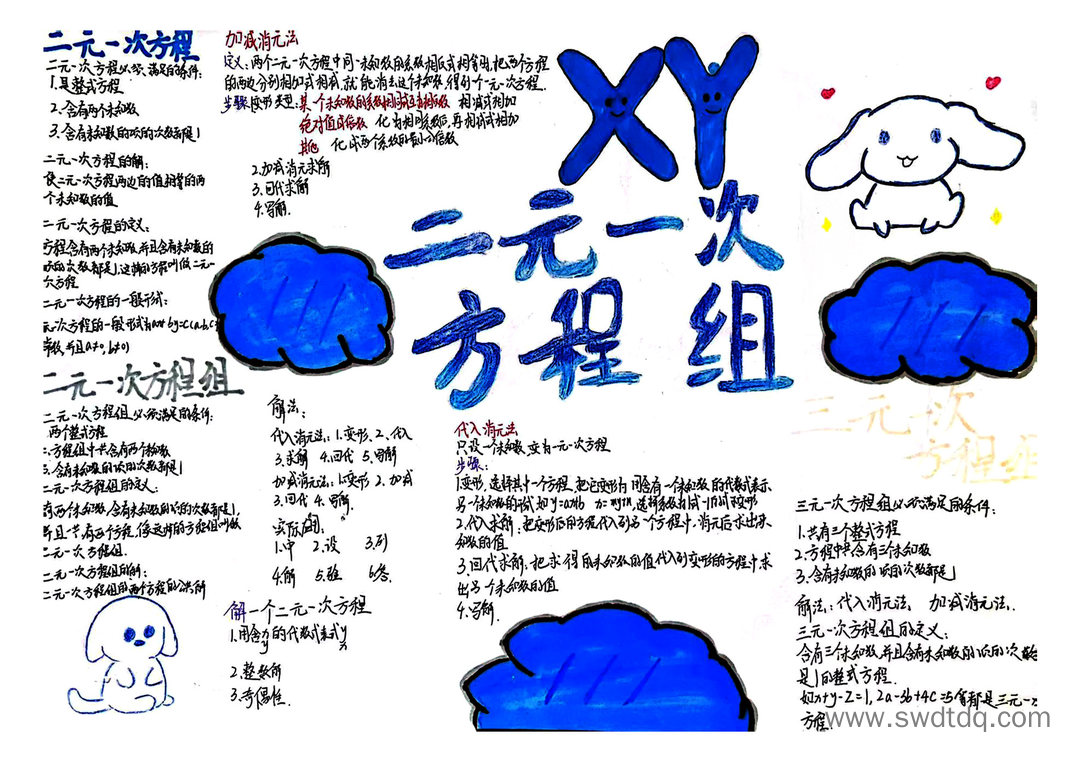 二元一次方程
二元一次方程必须满足的条件:
1.是整式方程
2.含有两个未知数
3.含有未知数的项的次数都是1
二元一次方程的解:
使二元一次方程两边的值相等的两
个未知数的值
二元一次方程的定义:
方程含有两个未知数,并且含有未知数的
项的次数都是1,这样的方程叫做二元一
次方程
二元一次方程的一般形式:
元一次方程的一般形式为ax+by=c(a.b.c
常数,并且a≠0,b≠0)
二元一次方程组
二元一次方程组必须满足的条件:
两个整式方程
方程组中共含有两个未知数
3.含有未知数的项的次数都是1
二元一次方程组的定义:
有两个未知数,含有未知数的项的次数都是1,
并且一共有两个方程,像这样的方程组叫做
二元一次方程组.
二元一次方程组的解:
二元一次方程组的两个方程的公共解
加减消元法
定义:两个二元一次方程中同一未知数的系数相反或相等时,把两个方程
的两边分别相加或相减,就能消去这个未知数,得到一个一元一次方程.
步骤:变形 类型:某一个未知数的系数相同或互为相反数 相减或相加
绝对值成倍数 化为相同系数后,再相减或相加
其他 化成两个系数的最小公倍数
2.加减消元求解
3.回代求解
4.写解.
XY
二元一次
方程组
解法:
代入消元法:1.变形 2.代入
3.求解 4.回代 5.写解
加减消元法:1.变形 2.加减
3.回代 4.写解.
实际应用:
1.审 2.设 3.列
4.解 5.验 6.答.
解一个二元一次方程
1.用含x的代数式表示y
y x
2.整数解
3.奇偶性.
代入消元法
只设一个未知数,变为一元一次方程
步骤:
1.变形,选择其中一个方程,把它变形为用含有一个未知数的代数式表示
另一未知数的式,如y=ax+b x=my+n,选择系数为1或-1的式变形
2.代入求解:把变形后的方程代入到另一个方程中,消元后求出未
知数的值
3.回代求解:把求得的未知数的值代入到变形的方程中求
出另一个未知数的值
4.写解.
三元一次
方程组
三元一次方程组必须满足的条件:
1.共有三个整式方程
2.方程中共含有三个未知数
3.含有未知数的项的次数都是1
解法:代入消元法, 加减消元法.
三元一次方程组的定义:
含有三个未知数,并且含有未知数的项的次数
是1的整式方程.
如x+y-z=1,2a-3b+4c=5等都是三元一次
方程.
www.swdtdq.com